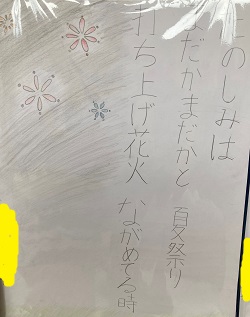 のしみは
だかまだかと 夏祭り
打ち上げ花火 ながめてる時